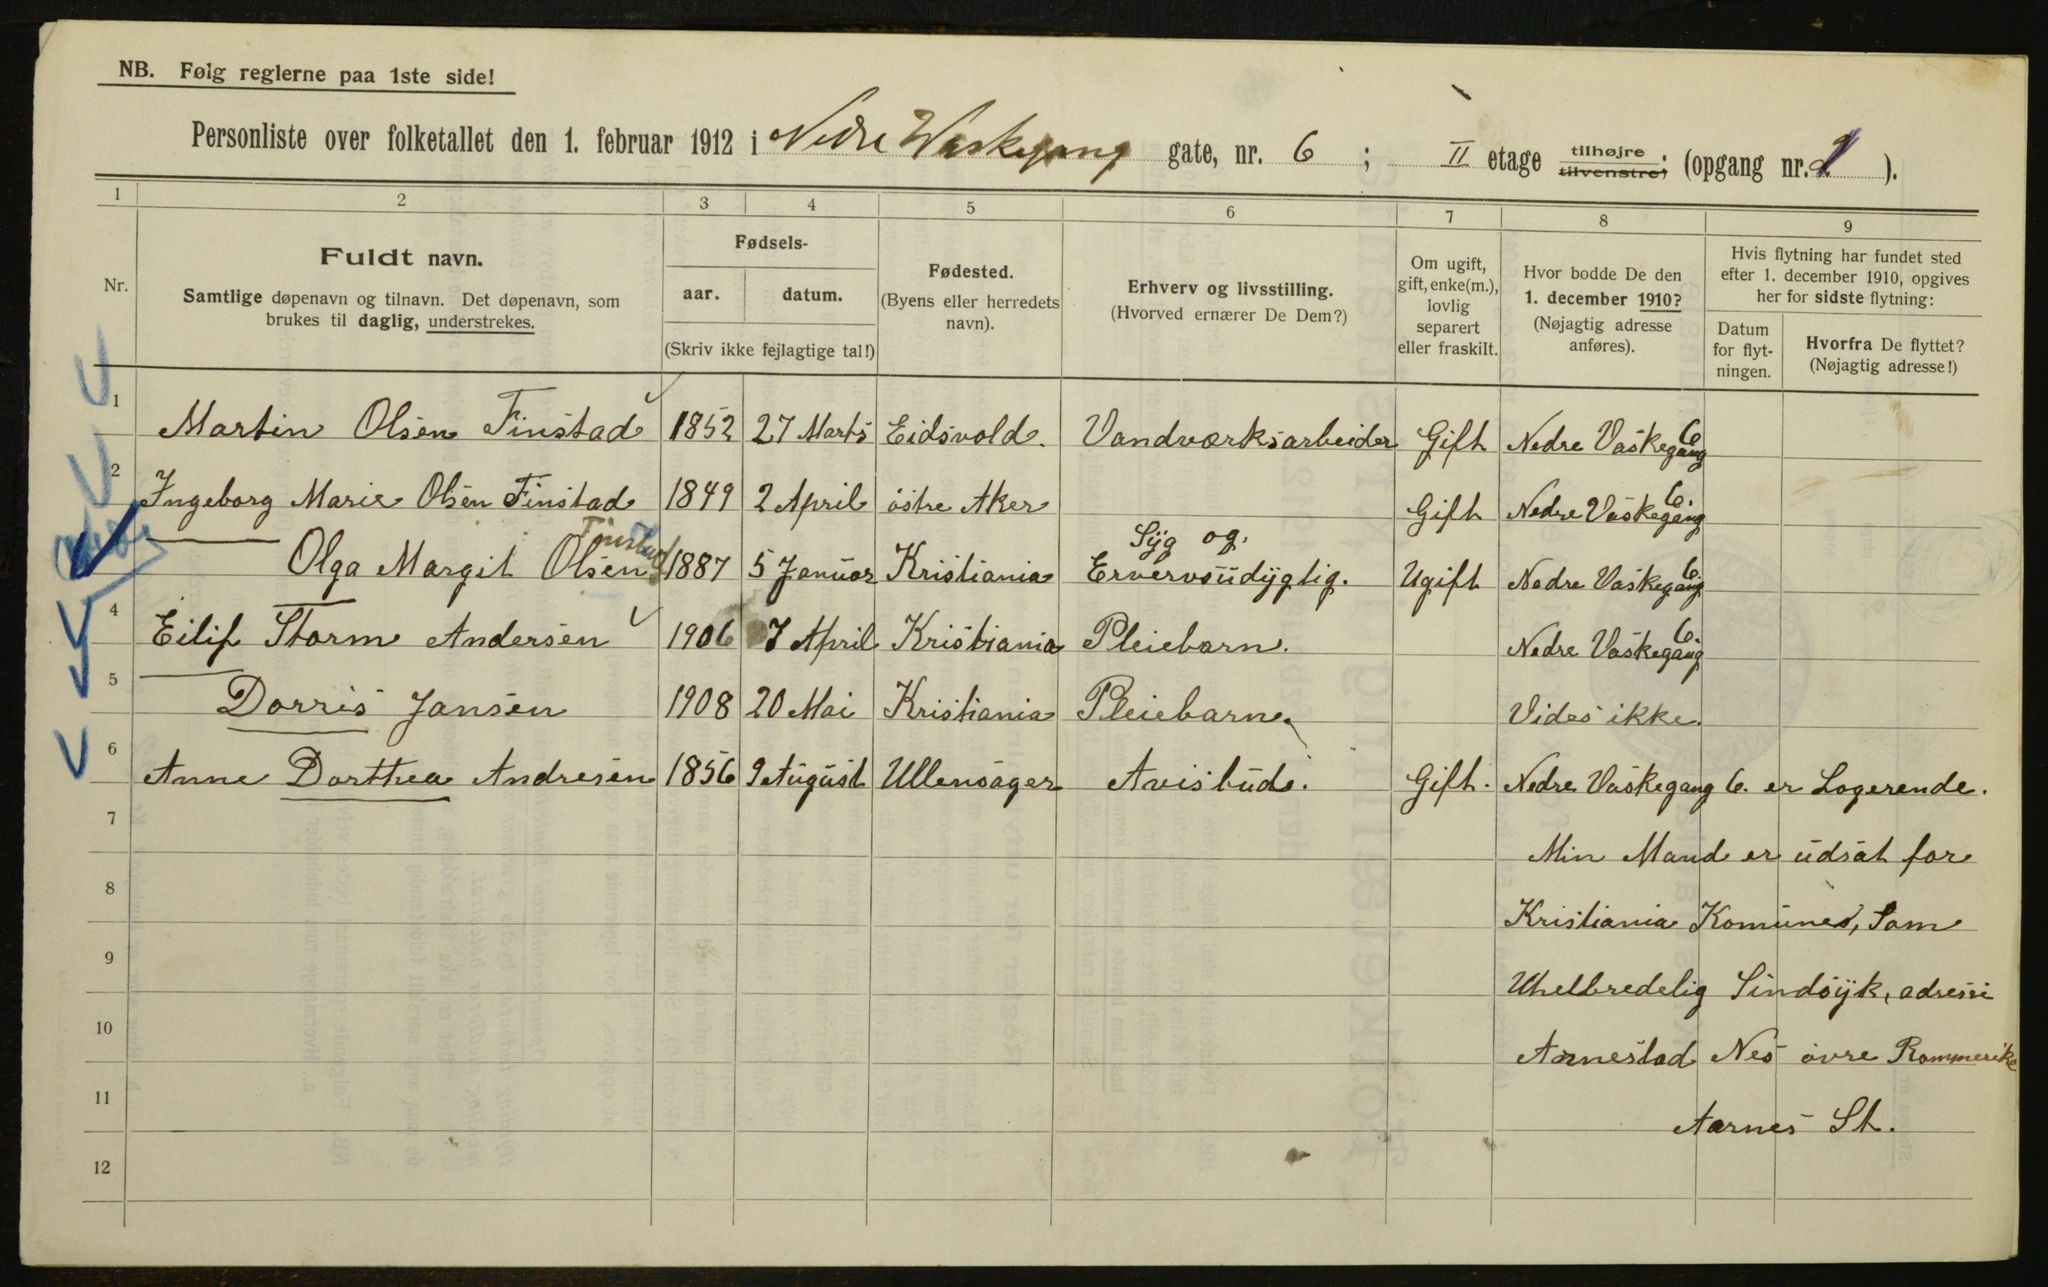 NB. Følg reglerne paa 1ste side!
Personliste over folketallet den 1. februar 1912 i Nedre Waskegang gate, nr. 6 ; II etage tilhøjre. tilvenstre; (opgang nr. ).
1 2 3 4 5 6 7 8 9
Nr.
Fuldt navn.
Samtlige døpenavn og tilnavn. Det døpenavn, som
brukes til daglig, understrekes.
Fødsels-
aar. datum.
(Skriv ikke fejlagtige tal!)
Fødested.
(Byens eller herredets
navn).
Erhverv og livsstilling.
(Hvorved ernærer De Dem?)
Om ugift,
gift, enke(m.),
lovlig
separert
eller fraskilt.
Hvor bodde De den
1. december 1910?
(Nøjagtig adresse
anføres).
Hvis flytning har fundet sted
efter 1. december 1910, opgives
her for sidste flytning:
Datum
for flyt-
ningen.
Hvorfra De flyttet?
(Nøjagtig adresse!)
1 Martin Olsen Finstad 1852 27 Marts Eidsvold. Vandværksarbeider Gift Nedre Vaskegang 6
2 Ingeborg Marie Olsen Finstad 1849 2 April østre Aker Gift Nedre Vaskegang 6.
Olga Margit Olsen Finstad 1887 5 Januar Kristiania Syg og. Ervervsudygtig. Ugift Nedre Vaskegang 6.
4 Eilif Storm Andersen 1906 7 April Kristiania Pleiebarn. Nedre Vaskegang 6.
5 Dorris Jansen 1908 20 Mai Kristiania Pleiebarn. Vides ikke.
6 Anne Dorthea Andresen 1856 9 August Ullensager Avisbud. Gift. Nedre Vaskegang 6. er Logerende.
7 Min Mand er udsat for
8 Kristiania Komunes, Som
9 Uhelbredelig Sindsyk, adresse
10 Aarnestad Nes øvre Rommerike
11 Aarnes St.
12